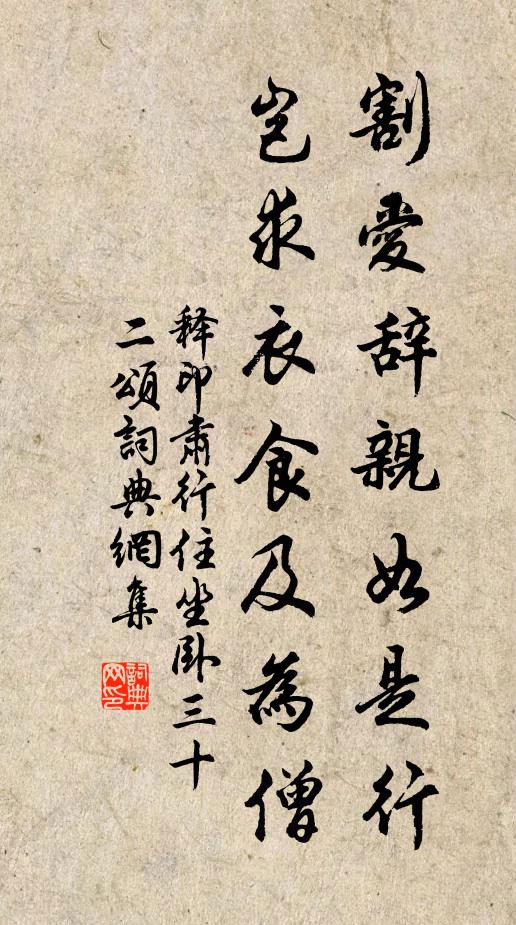 割愛辞親如是行
岂求衣食及為僧
释印肅行住坐卧三十
二頌詞典網集
詞典
网印